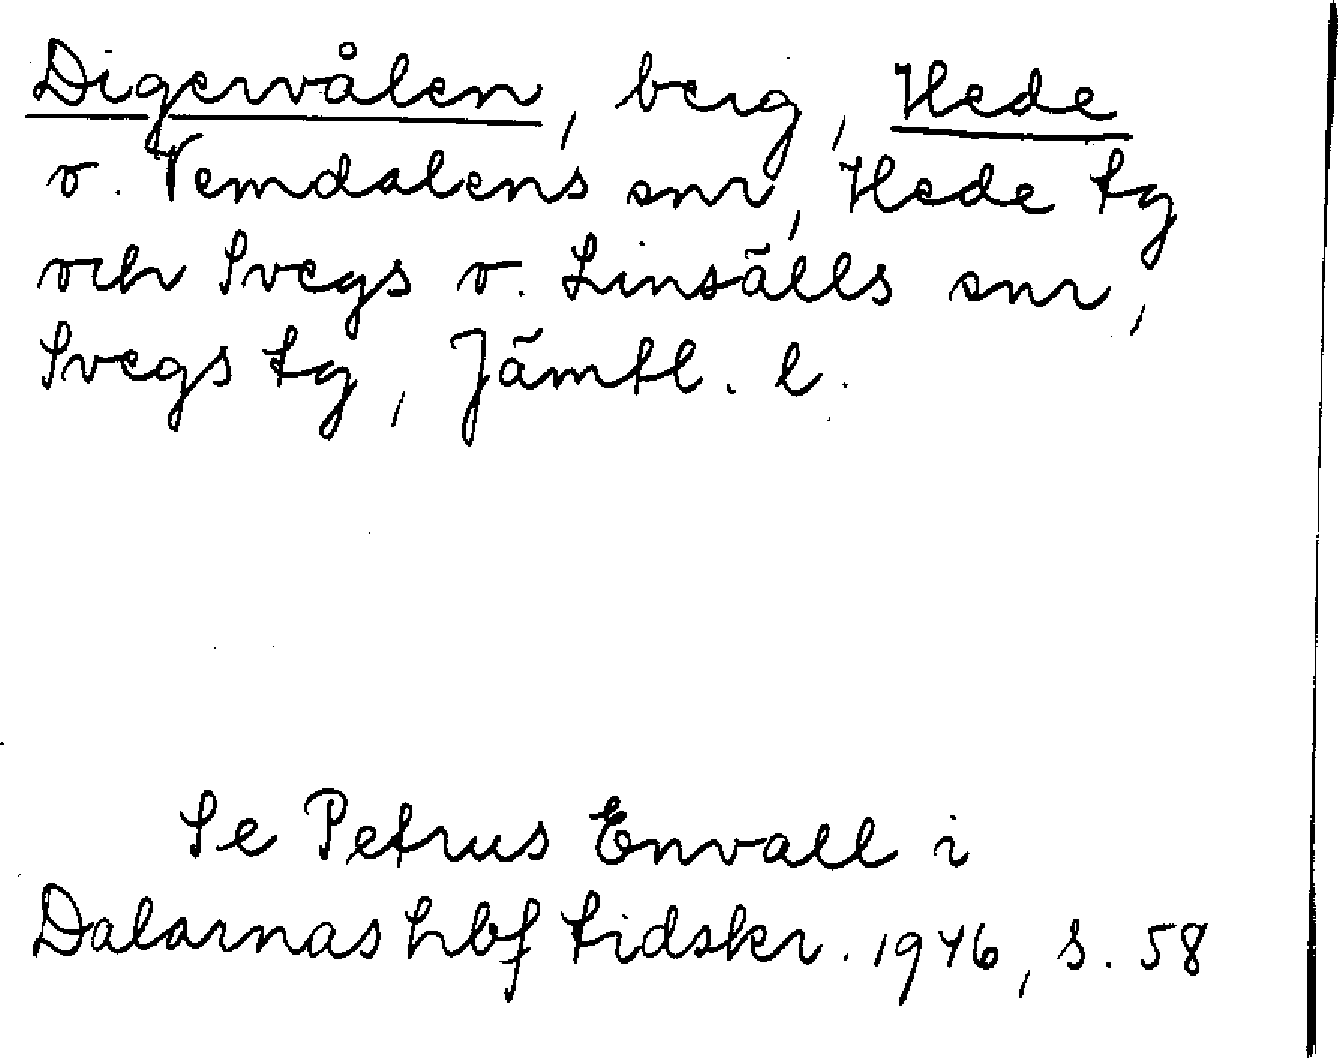 Digervålen, berg, Hede
o. Vemdalens snr, Hede tg
och Svegs o. Linsälls snr,
Svegs tg, Jämtl. l.
Se Petrus Envall i
Dalarnas hbf tidskr. 1946, s. 58